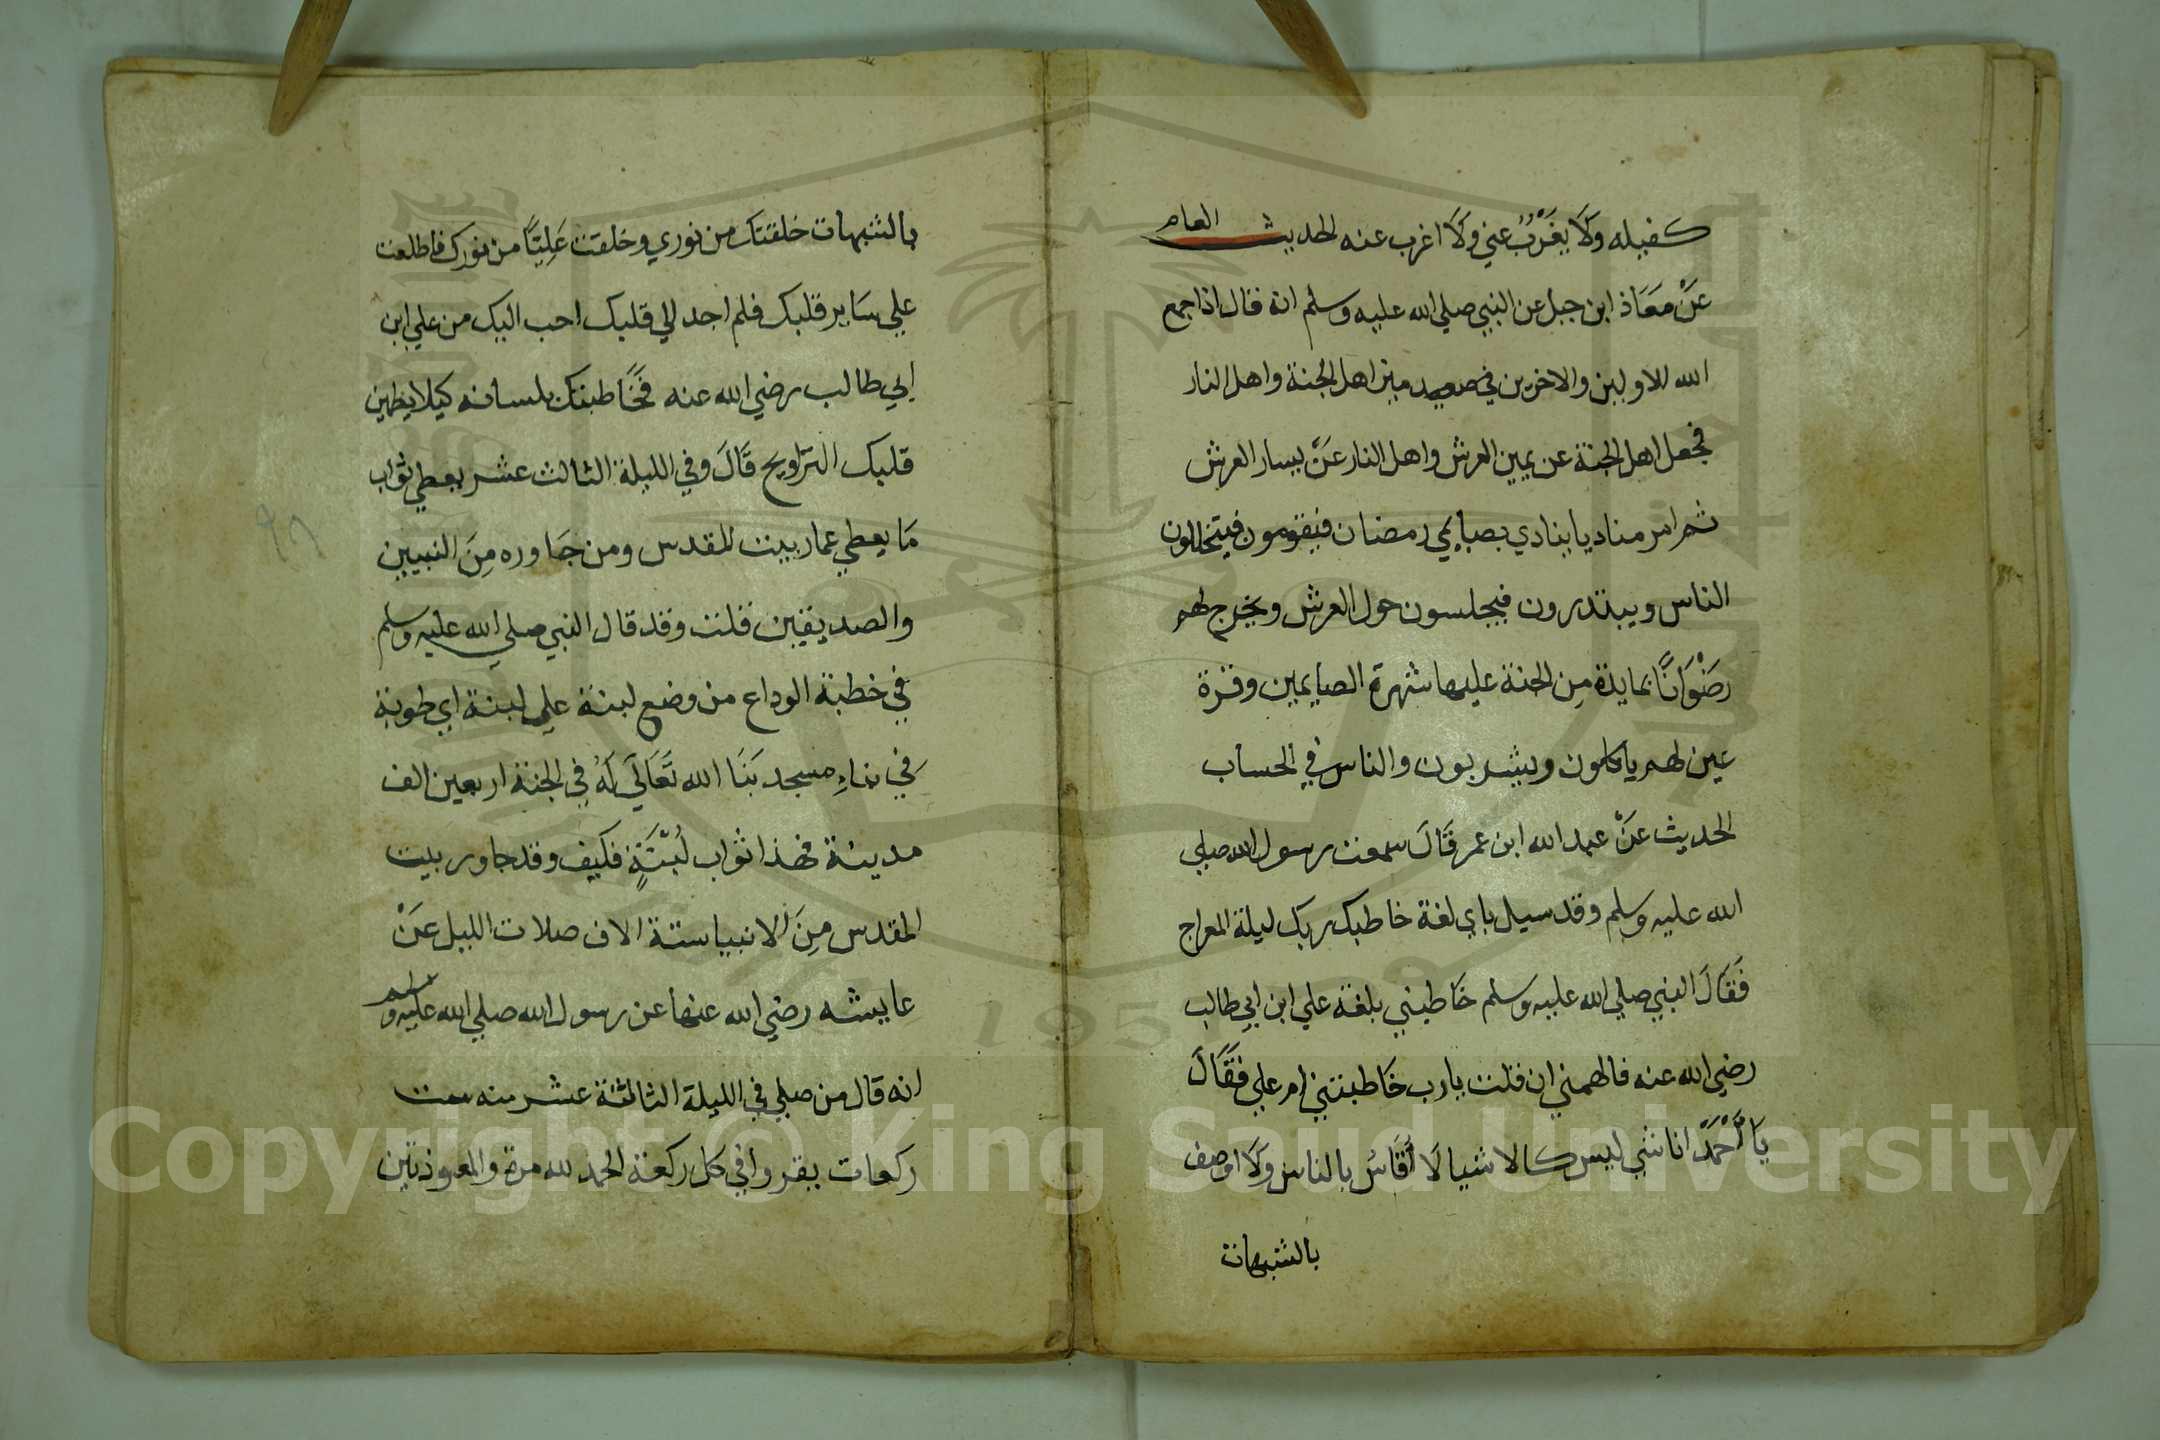 كفيله ولَا يغَرُبُ عني ولَا اغرب عنه الحديث العام
عَنْ مَعَاذ ابن جبل عن النبي صلي الله عليه وسلم انه قال اذا جمع
الله الاولين والاخرين في صعيد ميز اهل الجنة واهل النار
فجعل اهل الجنة عن يمين العرش واهل النار عَنْ يسار العرش
ثم امر مناديا ينادي بصبايمي رمضان فيقومون فيتخللون
الناس ويبتدرون فيجلسون حول العرش ويخرج لهم
رضْوَانًا بمايدة مِن الجنة عليها شهرة الصايمين وقرة
عين لهم ياكلون ويشربون والناس في الحساب
الحديث عَنْ عبد الله ابن عمر قَالَ سمعت رسول الله صلي
الله عليه وسلم وقد سيل باي لغة خاطبك ربك ليلة المعراج
فَقَالَ النبي صلي الله عليه وسلم خَاطبني بلغة علي ابن ابي طالب
رضي الله عنه فالهمني ان قلت يا رب خَاطبتني ام علي فَقَالَ
يَا أَحْمَدُ انا شي ليس كالاشيا لَا أقَاسُ بالناس ولَا اوصف
بالشبهات
بالشبهات خلقتك من نوري وخلقت عَلِيًّا من نورك فاطلعت
علي سَاير قلبك فلم اجد الي قلبك احب اليك من علي ابن
ابي طالب رضي الله عنه فخَاطبتك بلسانه كيلا يطمين
قلبك التراويح قَالَ وفي الليلة الثالث عشر يعطي ثواب
مَا يعطي عمار بيت المقدس ومن جَاوره مِنَ النبيين
والصديقين قلت وقد قال النبي صلي الله عليه وسلم
في خطبة الوداع من وضع لبنة علي لبنة اي طوبة
في بناءِ مسجد بَنَا الله تَعَالَي لَهُ فِي الجنة اربعين الف
مدينة فهذا ثواب لُبْنَةٍ فكيف وقد جاور بيت
المقدس مِنَ الانبيا ستة الاف صلات الليل عَنْ
عايشه رضي الله عنها عن رسول الله صلي الله عليه وسلم
انه قال من صلي في الليلة الثالثة عشر منه ست
ركعات يقروا في كل ركعة الحمد لله مرة والمعوذتين
٩٦
Copyright © King Saud University
1957